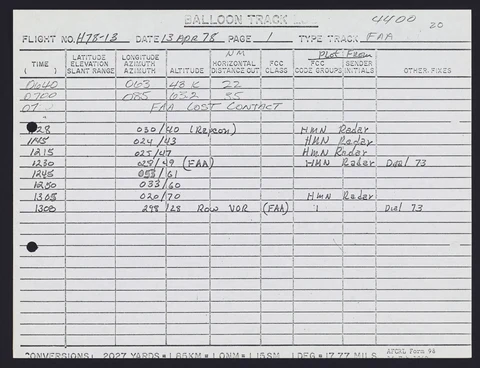 BALLOON TRACK
4400 20
FLIGHT NO. H78-13 DATE 13 APR 78 PAGE 1 TYPE TRACK FAA
Plot From
TIME ( ) LATITUDE ELEVATION SLANT RANGE LONGITUDE AZIMUTH AZIMUTH ALTITUDE NM HORIZONTAL DISTANCE OUT FCC CLASS FCC CODE GROUPS SENDER INITIALS OTHER FIXES
0640 063 48 K 22
0700 085 63.2 35
07 FAA LOST CONTACT
"
28 030/40 (Rapcon) HMN Radar
1145 024/43 HMN Radar
1215 025/47 HMN Radar
1230 029/49 (FAA) HMN Radar Dial 73
1245 053/61
1250 033/60
1305 020/70 HMN Radar
1300 298/28 Row VOR (FAA) 1 Dial 73
CONVERSIONS: 2027 YARDS = 1.85KM = 1.0NM = 1.15SM 1 DEG = 17.77 MILS AFCRL Form 94